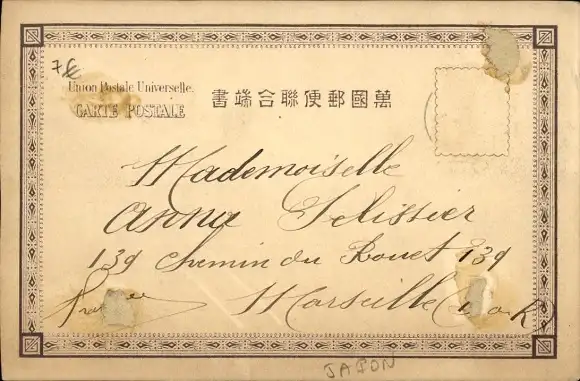 7€
Union Postale Universelle.
CARTE POSTALE
書端合聯便郵國萬
Mademoiselle
Anna Pelissier
139 Chemin du Rouet 139
Marseille
JAPON